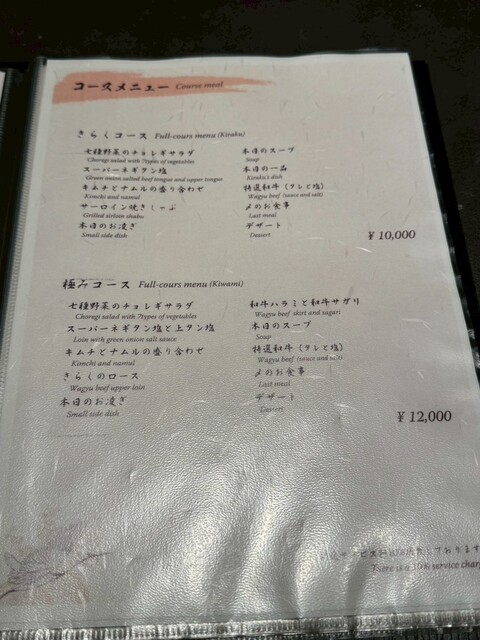 コースメニュー Course meal
きらくコース Full-cours menu (Kiraku)
七種野菜のチョレギサラダ
Choregi salad with 7types of vegetables
スーパーネギタン塩
Green onion salted beef tongue and upper tongue
キムチとナムルの盛り合わせ
Kimchi and namul
サーロイン焼きしゃぶ
Grilled sirloin shabu
本日のお凌ぎ
Small side dish
本日のスープ
Soup
本日の一品
Kiraku's dish
特選和牛（タレと塩）
Wagyu beef (sauce and salt)
〆のお食事
Last meal
デザート
Dessert
¥ 10,000
極みコース Full-cours menu (Kiwami)
七種野菜のチョレギサラダ
Choregi salad with 7types of vegetables
スーパーネギタン塩と上タン塩
Loin with green onion salt sauce
キムチとナムルの盛り合わせ
Kimchi and namul
きらくのロース
Wagyu beef upper loin
本日のお凌ぎ
Small side dish
和牛ハラミと和牛サガリ
Wagyu beef skirt and sagari
本日のスープ
Soup
特選和牛（タレと塩）
Wagyu beef (sauce and salt)
〆のお食事
Last meal
デザート
Dessert
¥ 12,000
ております
There is a 10% service charg